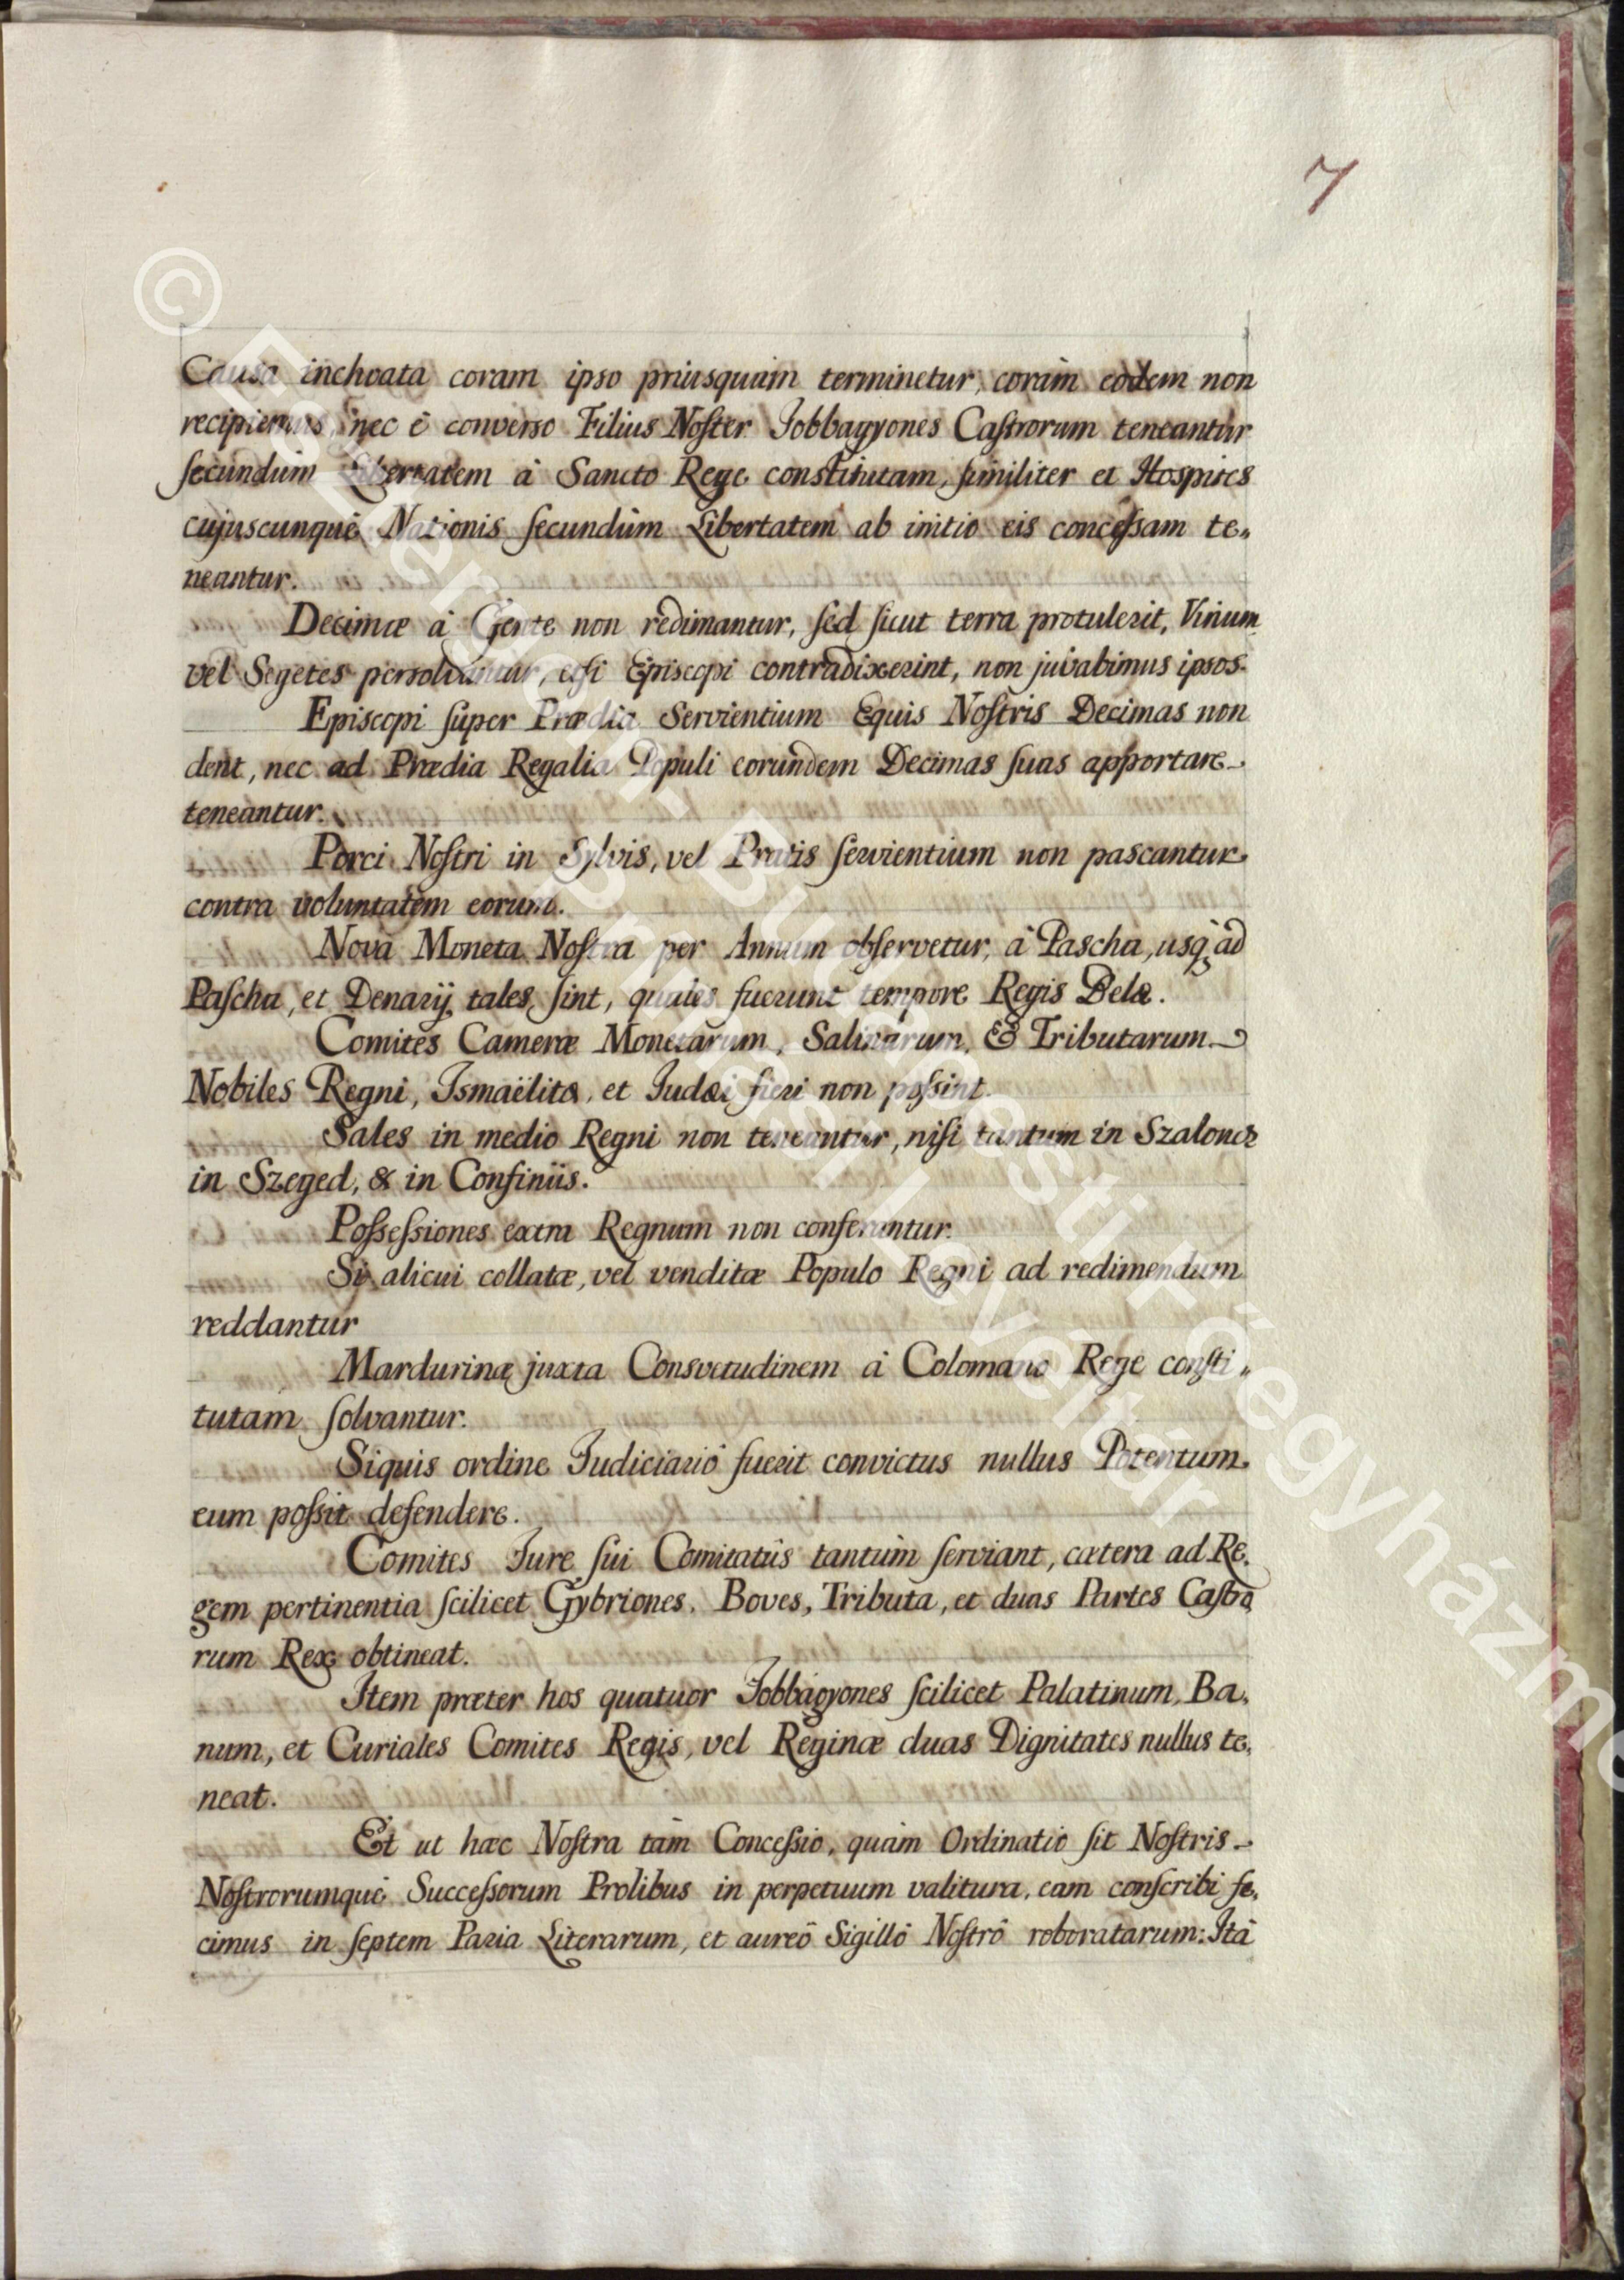 7
Causa inchoata coram ipso priusquàm terminetur, coràm eodem non
recipiemus, nec è converso Filius Noster Jobbagyones Castrorum teneantur
secundùm Libertatem à Sancto Rege constitutam, similiter et Hospites
cujuscunquè Nationis secundùm Libertatem ab initio eis concessam te„
neantur.
Decimæ à Gente non redimantur, sed sicut terra protulerit, Vinum
vel Segetes persolvantur, etsi Episcopi contradixerint, non juvabimus ipsos.
Episcopi super Prædia Servientium Equis Nostris Decimas non
dent, nec ad Prædia Regalia Populi eorundem Decimas suas apportare
teneantur.
Porci Nostri in Sylvis, vel Pratis servientium non pascantur
contra voluntatem eorum.
Nova Moneta Nostra per Annum observetur, à Pascha, usq; ad
Pascha, et Denarij tales sint, quales fuerunt tempore Regis Belæ.
Comites Cameræ Monetarum, Salinarum, & Tributarum
Nobiles Regni, Ismaëlitæ, et Judæi fieri non possint.
Sales in medio Regni non teneantur, nisi tantum in Szaloncz
in Szeged, & in Confiniis.
Possessiones extra Regnum non conferantur.
Si alicui collatæ, vel venditæ Populo Regni ad redimendum
reddantur
Mardurinæ juxta Consvetudinem à Colomano Rege consti„
tutam solvantur.
Siquis ordine Judiciariô fuerit convictus nullus Potentum
eum possit defendere.
Comites Jure sui Comitatûs tantùm serviant, cætera ad Re„
gem pertinentia scilicet Gybriones, Boves, Tributa, et duas Partes Castro„
rum Rex obtineat.
Item præter hos quatuor Jobbagyones scilicet Palatinum, Ba„
num, et Curiales Comites Regis, vel Reginæ duas Dignitates nullus te„
neat.
Et ut hæc Nostra tàm Concessio, quàm Ordinatio sit Nostris
Nostrorumquè Successorum Prolibus in perpetuum valitura, eam conscribi fe„
cimus in septem Paria Literarum, et aureô Sigillô Nostrô roboratarum: Ità
© Esztergom-Budapesti Főegyházme
Prímási Levéltár